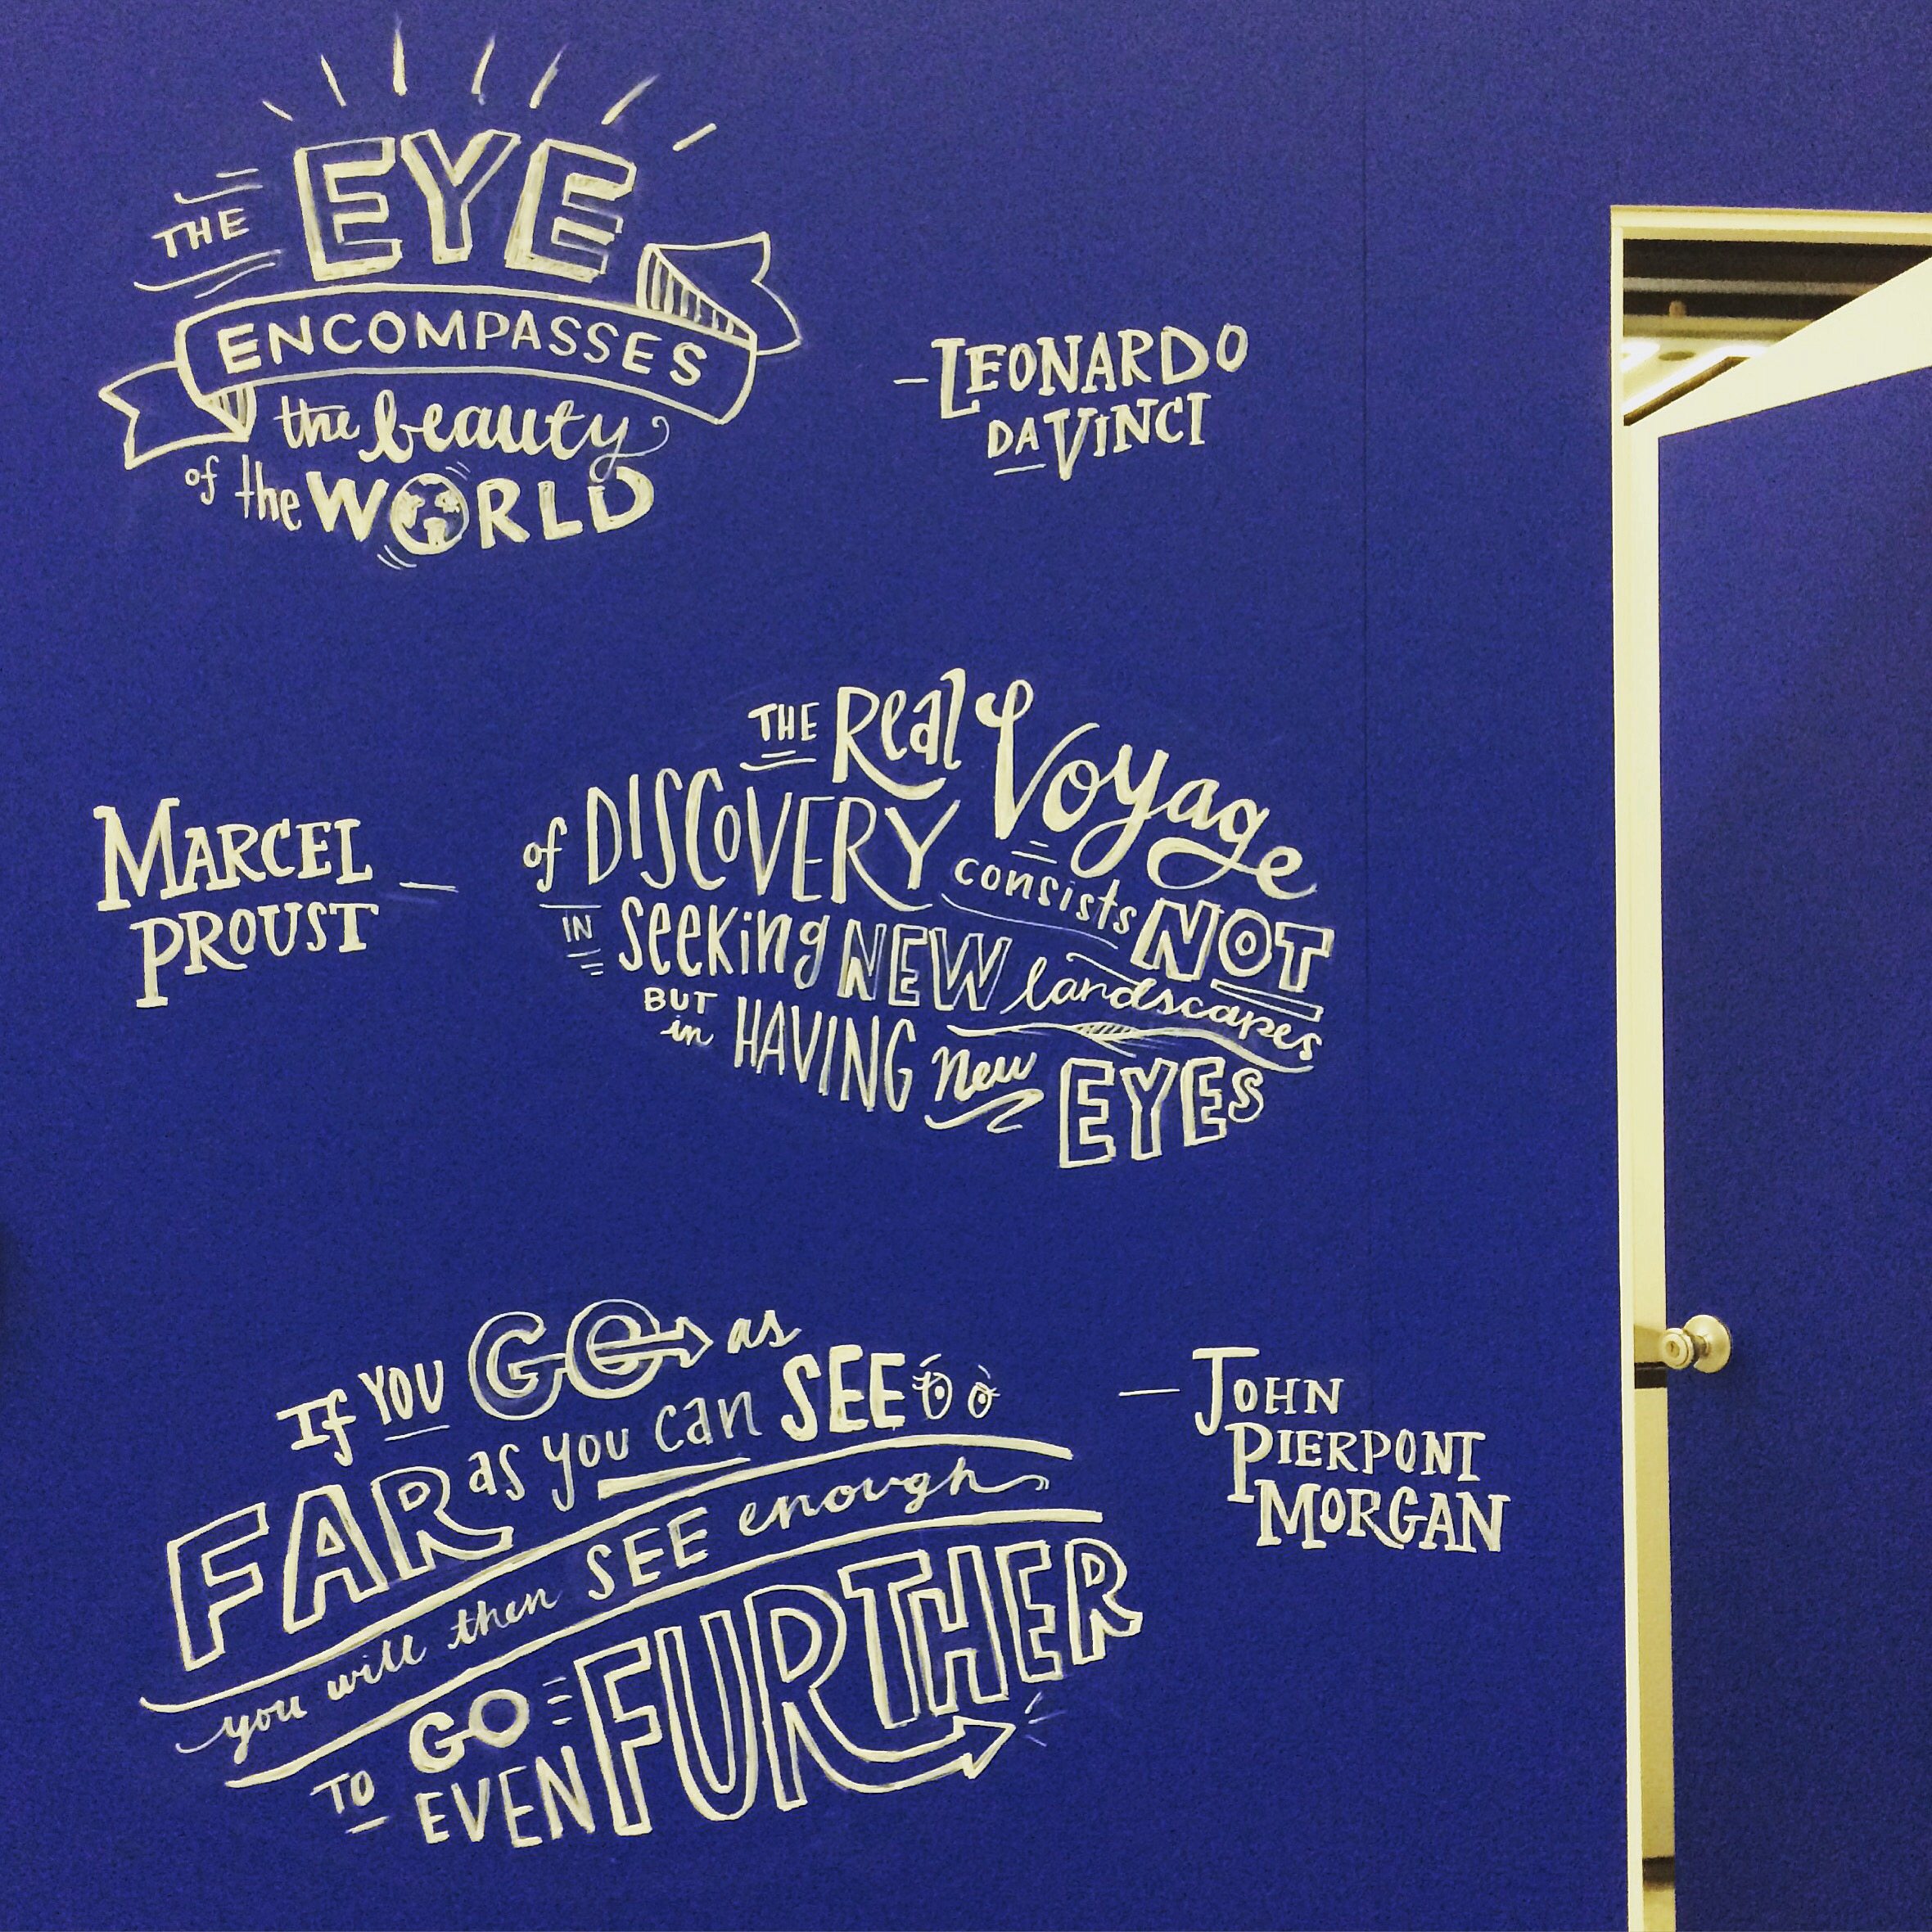 THE EYE
ENCOMPASSES
the beauty
of the WORLD
—LEONARDO
DA VINCI
THE Real Voyage
of DISCOVERY consists NOT
IN seeking NEW landscapes
BUT in HAVING new EYES
MARCEL —
PROUST
If YOU GO as
FAR as you can SEE
you will then SEE enough
TO GO
EVEN FURTHER
— JOHN
PIERPONT
MORGAN